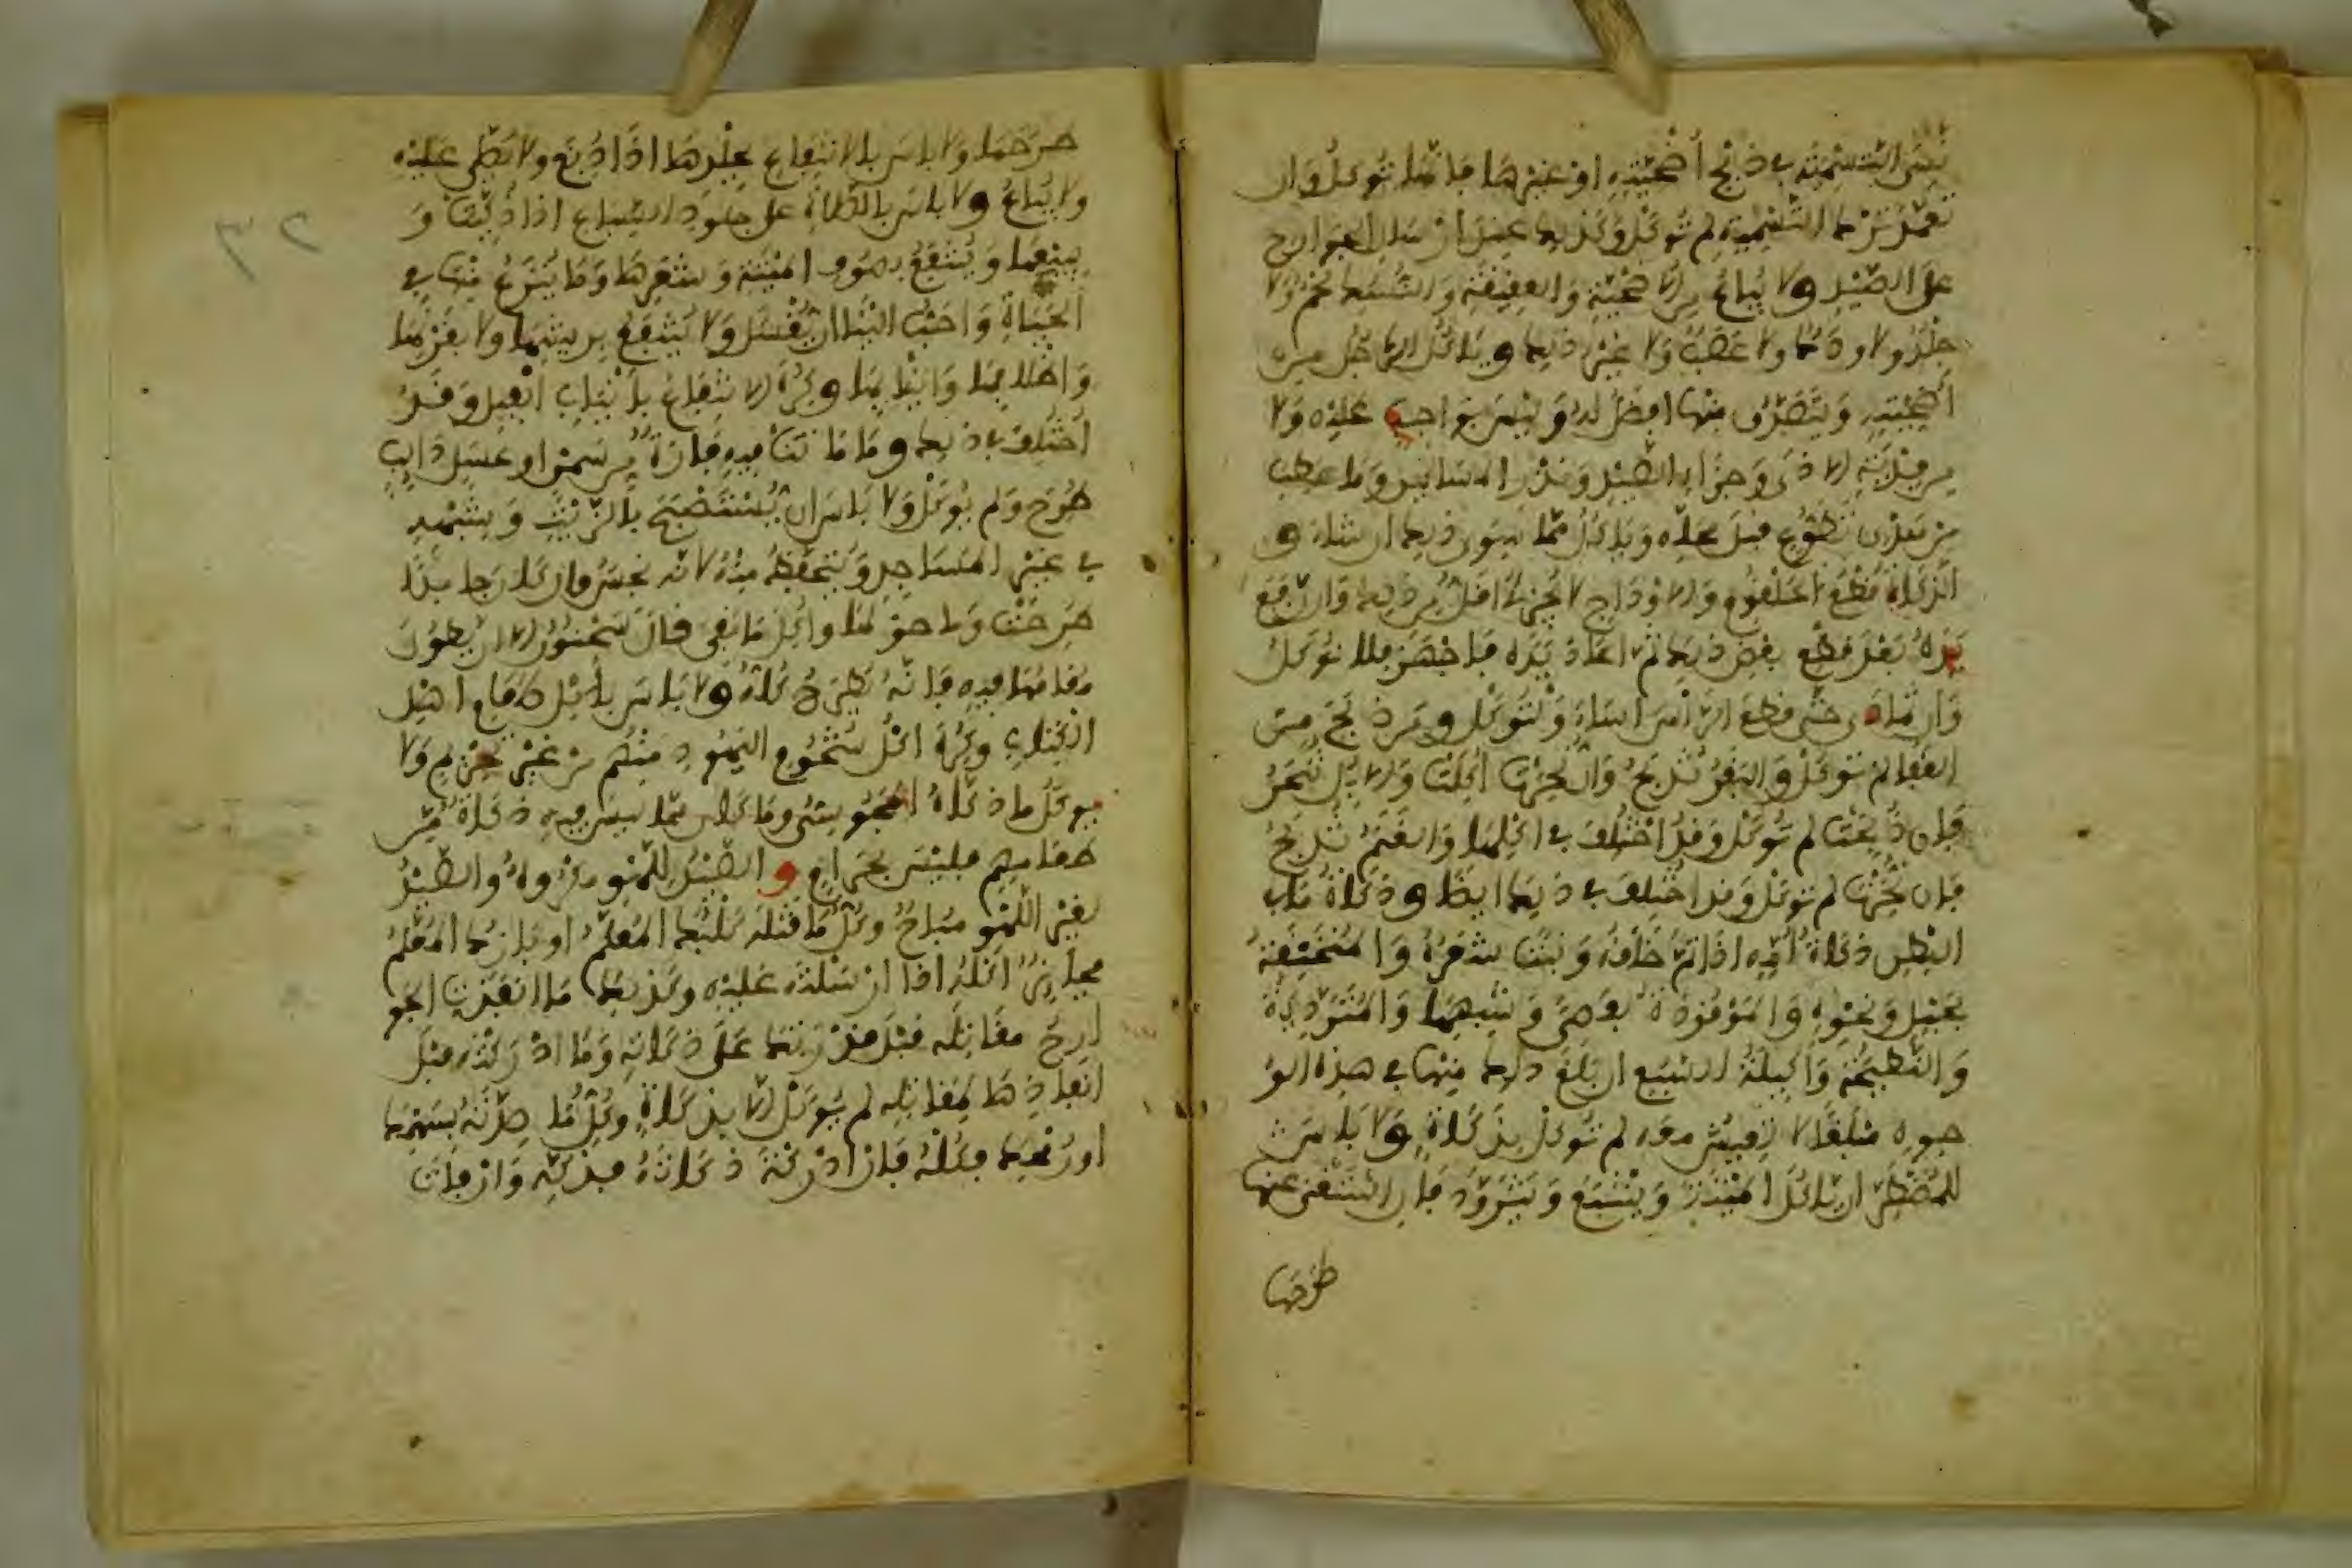 نسي التسمية في ذبح أضحيته او غيرها فانها توكل وان
تعمد ترك التسمية لم توكل وكذلك عند ارسال الجوارح
على الصيد ولا يباع من الاضحية والعقيقة والنسك لحم ولا
جلد ولا ودك ولا عصب ولا غير ذلك وياكل الرجل من
أضحيته ويتصدق منها افضل له وليس بواجب عليه ولا
من فدية الاذى وجزاء الصيد ونذر المساكين وما عطب
من هدي تطوع قبل محله وياكل مما سوى ذلك ان شاء و
الذكاة قطع الحلقوم والاوداج لا يجزئ أقل من ذلك وان رفع
يده بعد قطع بعض ذلك ثم اعاد يده فاجهز فلا توكل
وان تمادى حتى قطع الرأس اساء ولتوكل ومن ذبح من
القفا لم توكل والبقر تذبح وان نحرت أكلت والابل تنحر
فان ذبحت لم توكل وقد اختلف في اكلها والغنم تذبح
فان نحرت لم توكل وقد اختلف في ذلك ايضا وذكاة ما في
البطن ذكاة أمه اذا تم خلقه ونبت شعره والمنخنقة
بحبل ونحوه والموقوذة بعصى وشبهها والمتردية
والنطيحة وأكيلة السبع ان بلغ ذلك منها في هذه الو
جوه مبلغا لا تعيش معه لم توكل بذكاة ولا باس
للمضطر ان ياكل الميتة ويشبع ويتزود فان استغنى عنها
طرحها
طرحها ولا باس بالانتفاع بجلدها اذا دبغ ولا يصلى عليه
ولا يباع ولا باس بالصلاة على جلود السباع اذا ذكيت و
بيعها وينتفع بصوف الميتة وشعرها وما ينزع منها في
الحياة واحب الينا ان يغسل ولا ينتفع بريشها ولا بقرنها
واظلافها وانيابها وكره الانتفاع بأنياب الفيل وقد
أختلف في ذلك وما ماتت فيه فارة من سمن او عسل ذايب
طرح ولم يوكل ولا باس ان يستصبح بالزيت وشبهه
في غير المساجد وليتحفظ منه لانه نجس وان كان جامدا
طرحت وما حولها وأكل ما بقي قال سحنون الا ان يطول
مقامها فيه فانه يطرح كله ولا باس بأكل طعام اهل
الكتاب وكره اكل شحوم اليهود منهم من غير تحريم ولا
يوكل ما ذكاه المجوسي وما كان مما ليس فيه ذكاة من
طعامهم فليس بحرام و الصيد للهو مكروه والصيد
لغير اللهو مباح وكل ما قتله كلبك المعلم او بازك المعلم
فجايز أكله اذا ارسلته عليه وكذلك ما انفذت الجو
ارح مقاتله قبل قدرتك على ذكاته وما ادركته قبل
انفاذها لمقاتله لم يوكل الا بذكاة وكل ما صدته بسهمك
او رمحك فكله فان ادركت ذكاته فذكه وان فات
٢٣